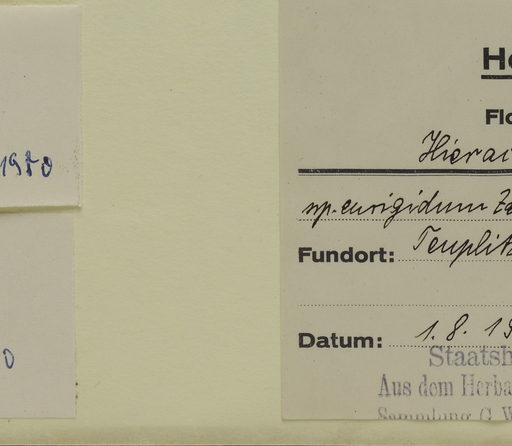 1950
He
Flo
Hierac
sp. eurigidum Za
Fundort: Teuplitz
Datum: 1. 8. 19
Staatsh
Aus dem Herba
Sammlung G. W
0